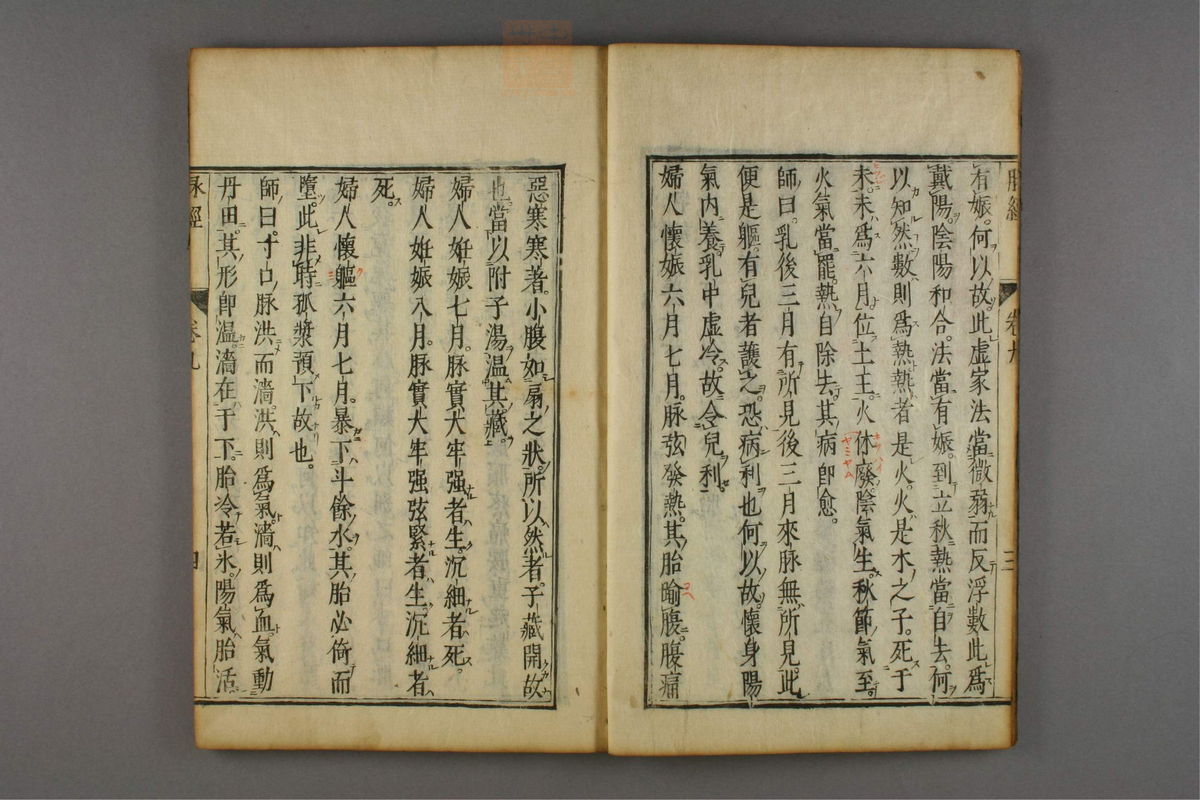 脉經
卷九
三
有娠何以故此虛家法當微弱而反浮數此爲
戴陽陰陽和合法當有娠到立秋熱當自去何
以知然數則爲熱熱者是火火是木之子死于
未未爲六月位土王火休廢陰氣生秋節氣至
火氣當罷熱自除去其病卽愈
師曰乳後三月有所見後三月來脉無所見此
便是軀有兒者護之恐病利也何以故懷身陽
氣內養乳中虛冷故令兒利
婦人懷娠六月七月脉弦發熱其胎踰腹腹痛
惡寒寒著小腹如扇之狀所以然者子藏開故
也當以附子湯温其藏
婦人姙娠七月脉實大牢强者生沉細者死
婦人姙娠八月脉實大牢强弦緊者生沉細者
死
婦人懷軀六月七月暴下斗餘水其胎必倚而
墮此非時孤漿預下故也
師曰寸口脉洪而濇洪則爲氣濇則爲血氣動
丹田其形卽温濇在于下胎冷若氷陽氣胎活
脉經
卷九
四